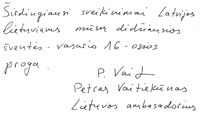 Širdingiausi sveikinimai Latvijos
lietuviams mūsų didžiausios
šventės - vasario 16-osios
proga.
P. Vait
Petras Vaitiekūnas
Lietuvos ambasadorius